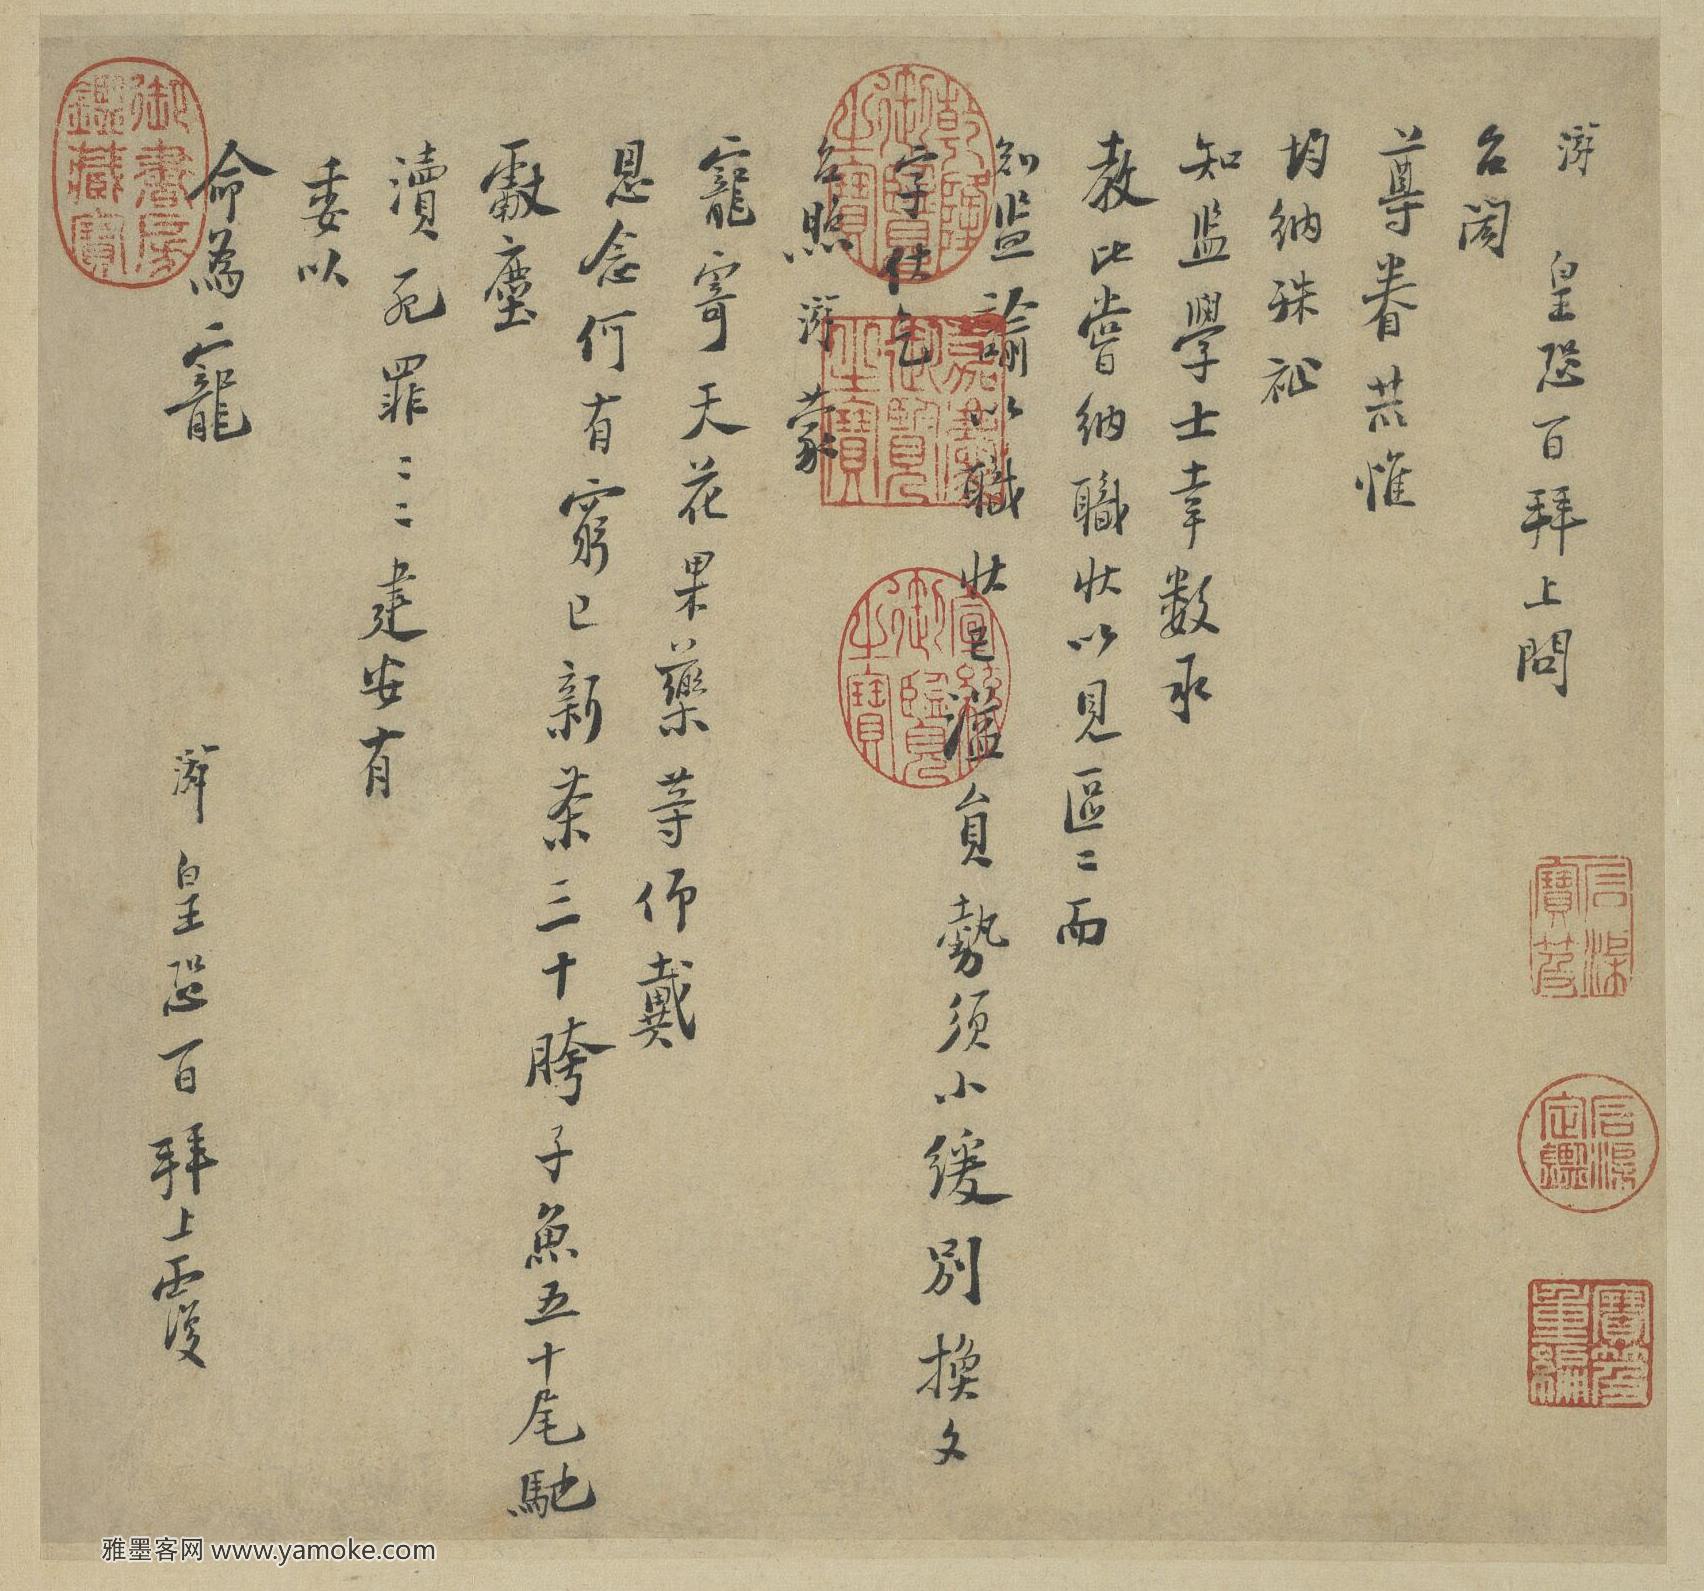 游 皇恐百拜上問
台閤
尊眷共惟
均納殊祉
知監學士幸数承
教比嘗納職状以見區〻而
知監諭以職状已溢員勢須小緩別換文
字伏乞
台照游蒙
寵寄天花果藥等仰戴
恩念何有窮已新茶三十胯子魚五十尾馳
獻塵
瀆死罪〻〻建安有
委以
命為寵
游皇恐百拜上覆
乾隆御覽之寶
嘉慶御覽之寶
宣統御覽之寶
御書房鑑藏寶
石渠寶笈
石渠定鑑
寶笈重編
雅墨客网 www.yamoke.com